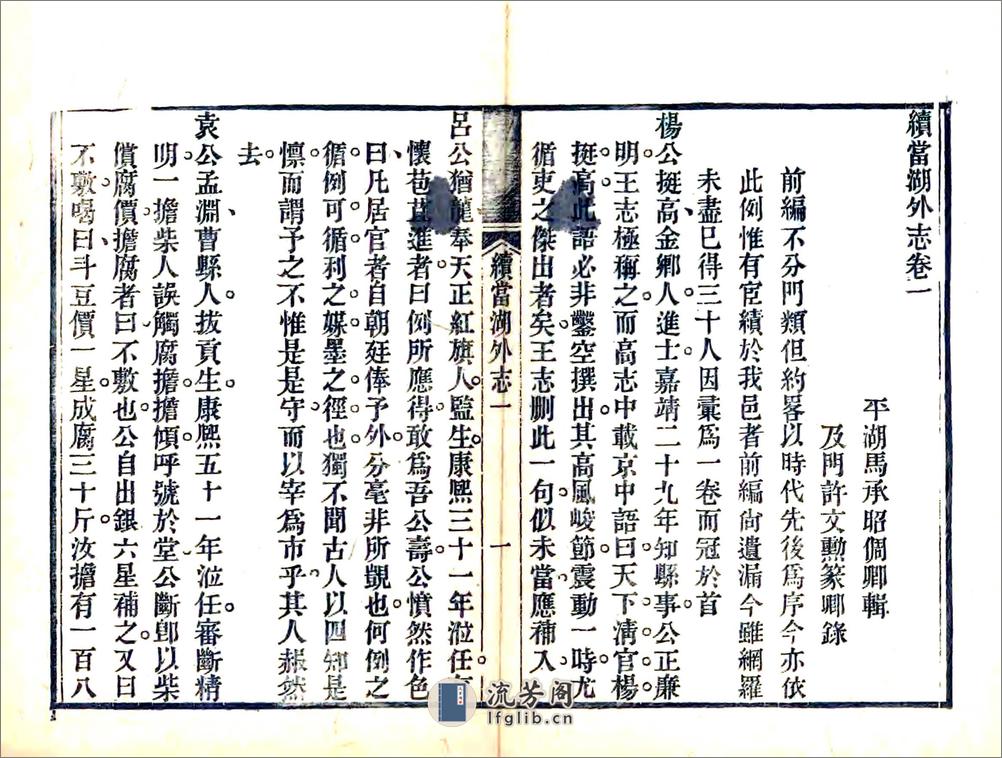 續當湖外志卷一
平湖馬承昭倜卿輯
及門許文勲篆卿錄
前編不分門類但約畧以時代先後爲序今亦依
此例惟有宦績於我邑者前編尙遺漏今雖網羅
未盡已得三十人因彙爲一卷而冠於首
楊公挺高金鄉人進士嘉靖二十九年知縣事公正廉
明王志極稱之而高志中載京中語曰天下淸官楊
挺高此語必非鑿空撰出其高風峻節震動一時尤
循吏之傑出者矣王志刪此一句似未當應補入
續當湖外志一
一
呂公猶龍奉天正紅旗人監生康熙三十一年涖任有
懷苞苴進者曰例所應得敢爲吾公壽公憤然作色
曰凡居官者自朝廷俸予外分毫非所覬也何例之
循例可循利之媒墨之徑也獨不聞古人以四知是
懍而謂予之不惟是是守而以宰爲市乎其人赧然
去
袁公孟淵曹縣人拔貢生康熙五十一年涖任審斷精
明一擔柴人誤觸腐擔擔傾呼號於堂公斷卽以柴
償腐價擔腐者曰不敷也公自出銀六星補之又曰
不敷喝曰斗豆價一星成腐三十斤汝擔有一百八
流芳阁
lfglib.cn